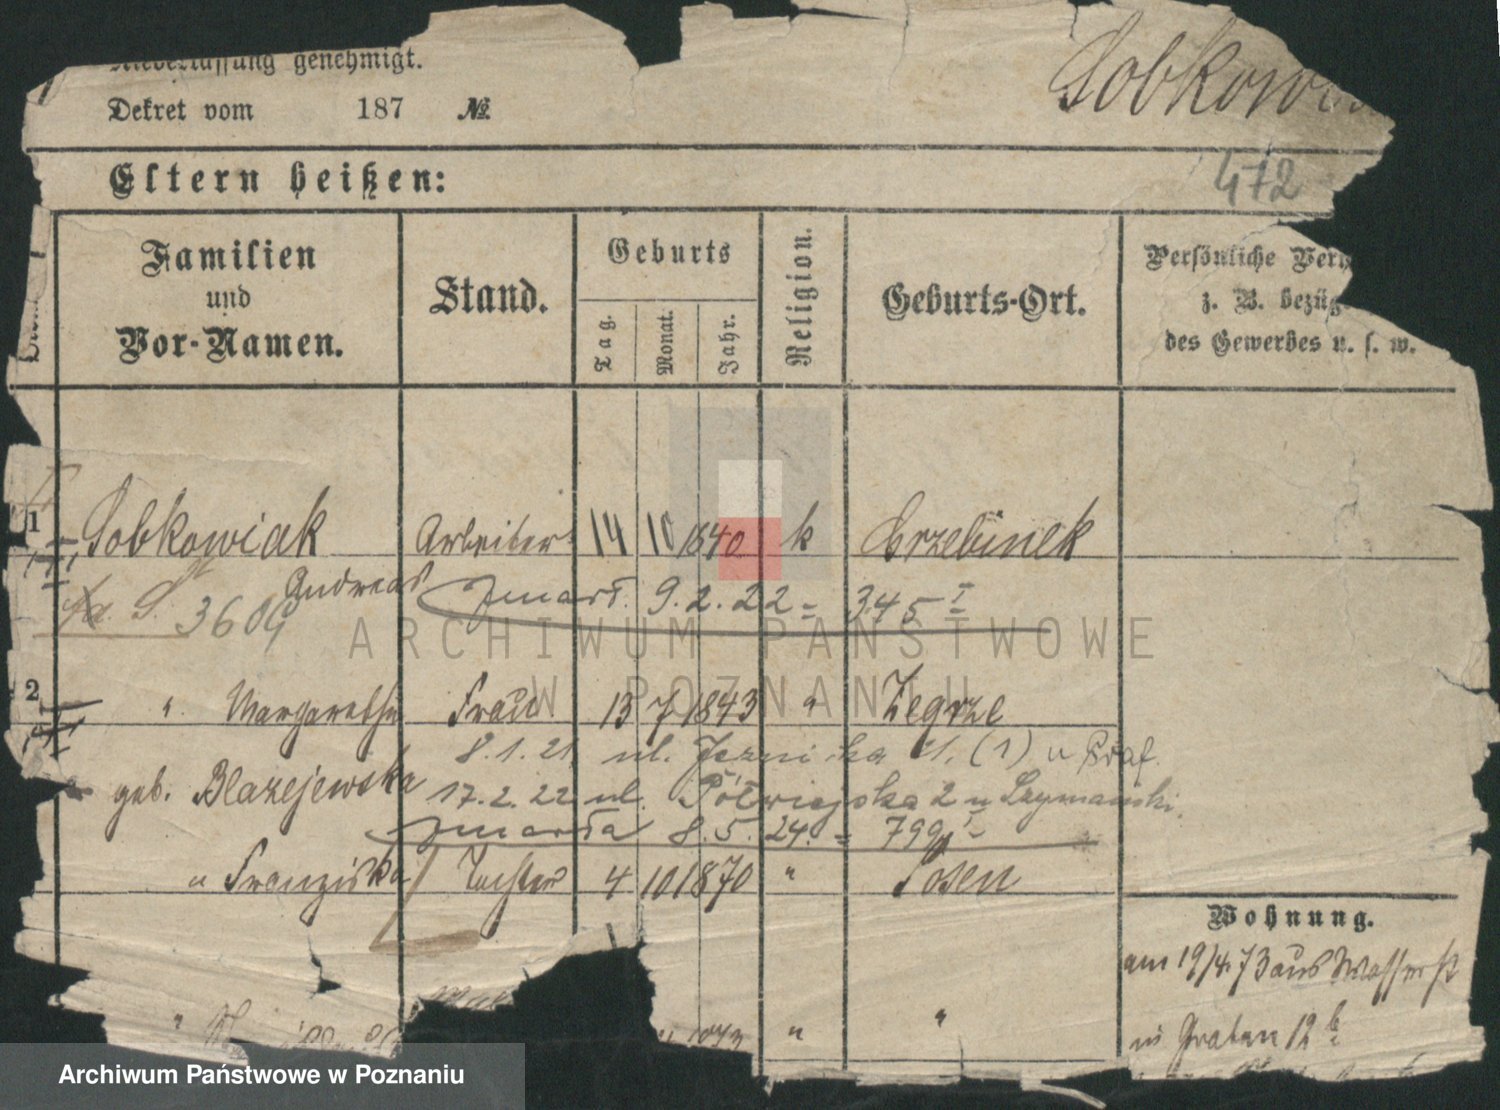 genehmigt.
Dekret vom 187 №
Sobkow
472
Eltern heißen:
Familien und Vor-Namen.
Stand.
Geburts
Tag.
Monat.
Jahr.
Religion.
Geburts-Ort.
Persönliche
z. B. bezüg
des Gewerbes u. s. w.
1 Sobkowiak Arbeiter 14 10 1840 k
Andreas
3604
zmarł. 9.2.22 = 345 I
ARCHIWUM PAŃSTWOWE
W POZNANIU
2 " Margaretha Frau 13 7 1843 " Zegrze
8.1.21 ul.
geb. Blazejewska
17.2.22 ul. Półwiejska 2 u Szymański.
zmarła 8.5.24. = 799 I
" Franziska Tochter 4 10 1870 " Posen
Wohnung.
am 19/4.73 aus Wasserst
in Graben 12
" "
Archiwum Państwowe w Poznaniu